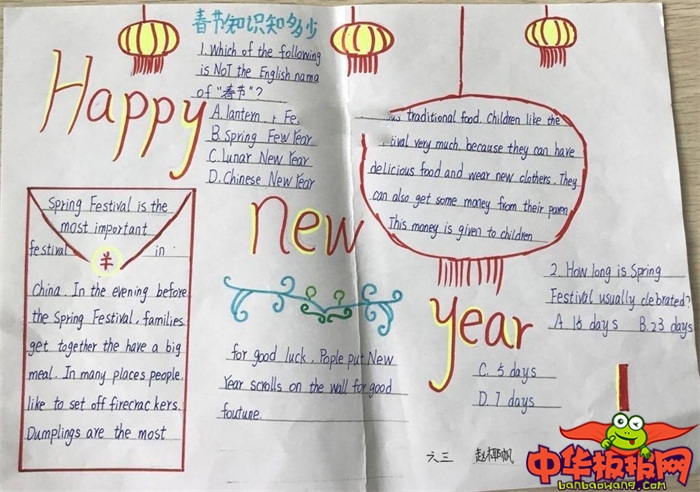 春节知识知多少
1. Which of the following
is NoT the English nama
of "春节"?
A. lantern Fe
B. Spring Few Year
C. Lunar New Year
D. Chinese New Year
Happy
new
year
Spring Festival is the
most important
festival in
China. In the evening before
the Spring Festival, families
get together the have a big
meal. In many places people
like to set off firecrackers.
Dumplings are the most
traditional food. Children like the
ival very much because they can have
delicious food and wear new clothers. They
can also get some maney from their paren
This maney is given to children
for good luck. Pople put New
Year scrolls on the wall for good
foutune.
2. How long is Spring
Festival usually clebrated?
A. 18 days B. 23 days
C. 5 days
D. 7 days
六三 赵椰帆
中华板报网
banbaowang.com